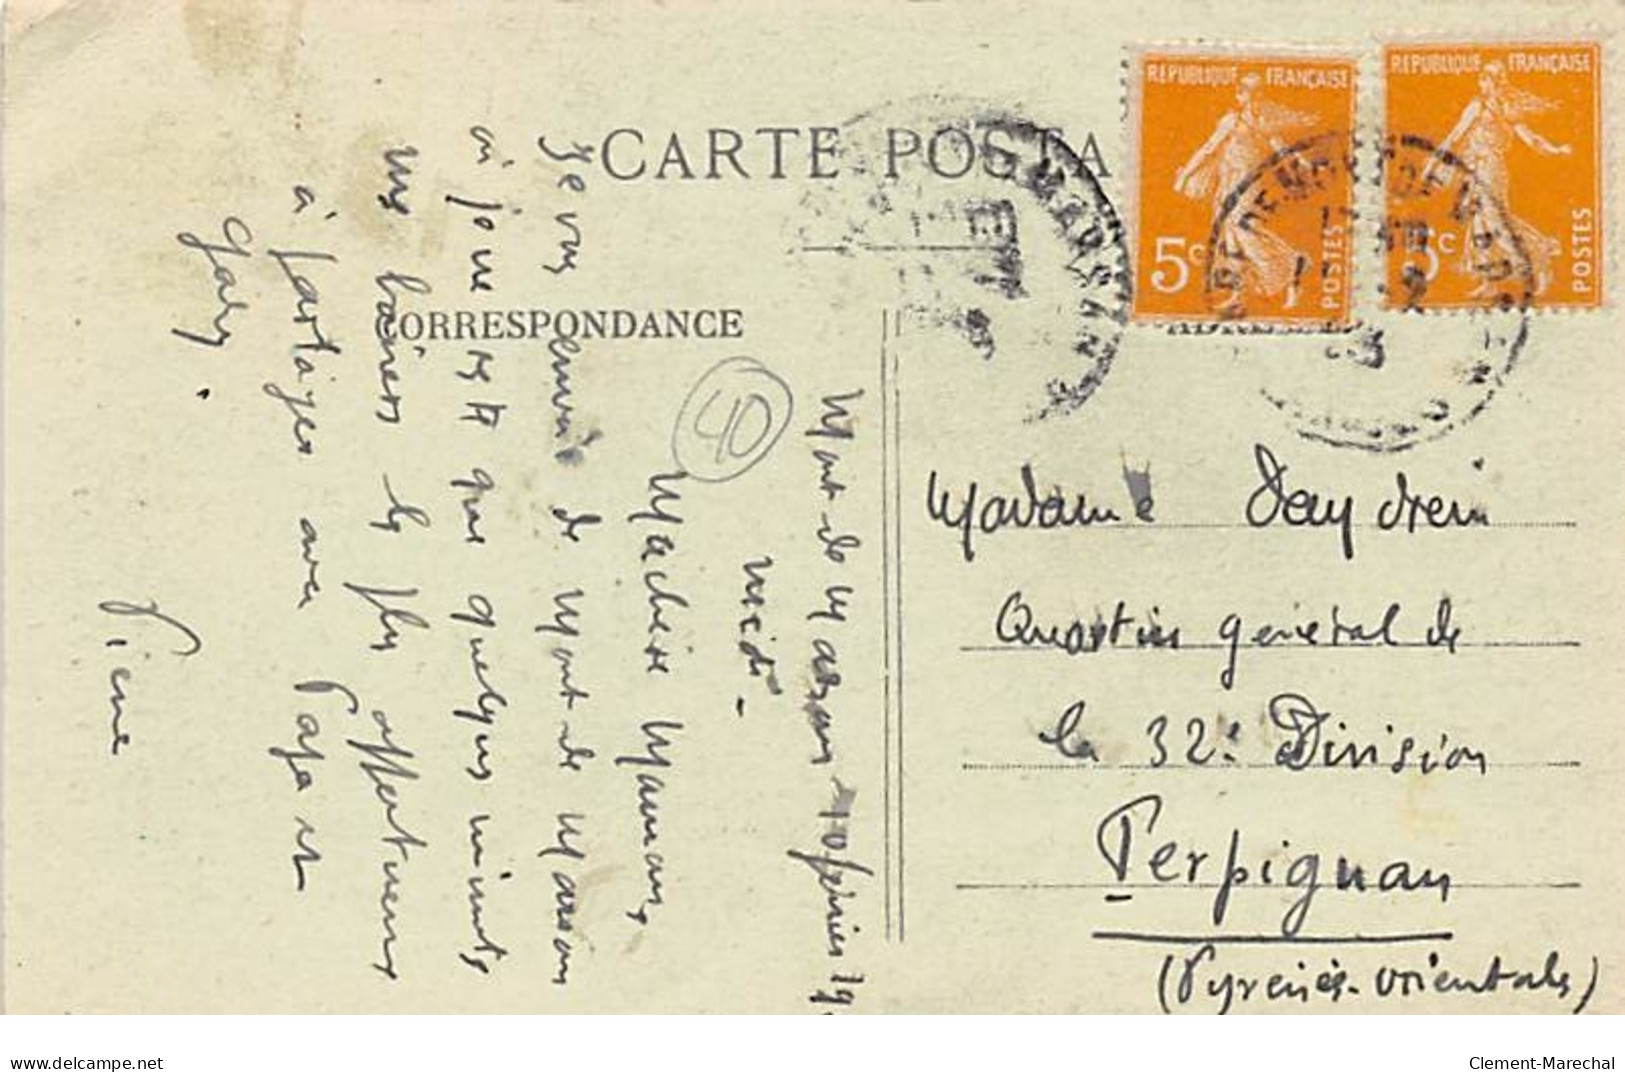 CARTE POSTA
CORRESPONDANCE
RÉPUBLIQUE FRANÇAISE
5c
POSTES
RÉPUBLIQUE FRANÇAISE
5c
POSTES
40
Mont de Marsan 10 février 19
midi -
Ma chère Maman,
Je vous envoie de Mont de Marson
où je ne reste que quelques minutes
mes baisers les plus affectueux
à partager avec Papa et
Gaby.
Pierre
Madame Daydrein
Quartier général de
la 32e Division
Perpignan
(Pyrénées-Orientales)
delcampe.net
Clement-Marechal